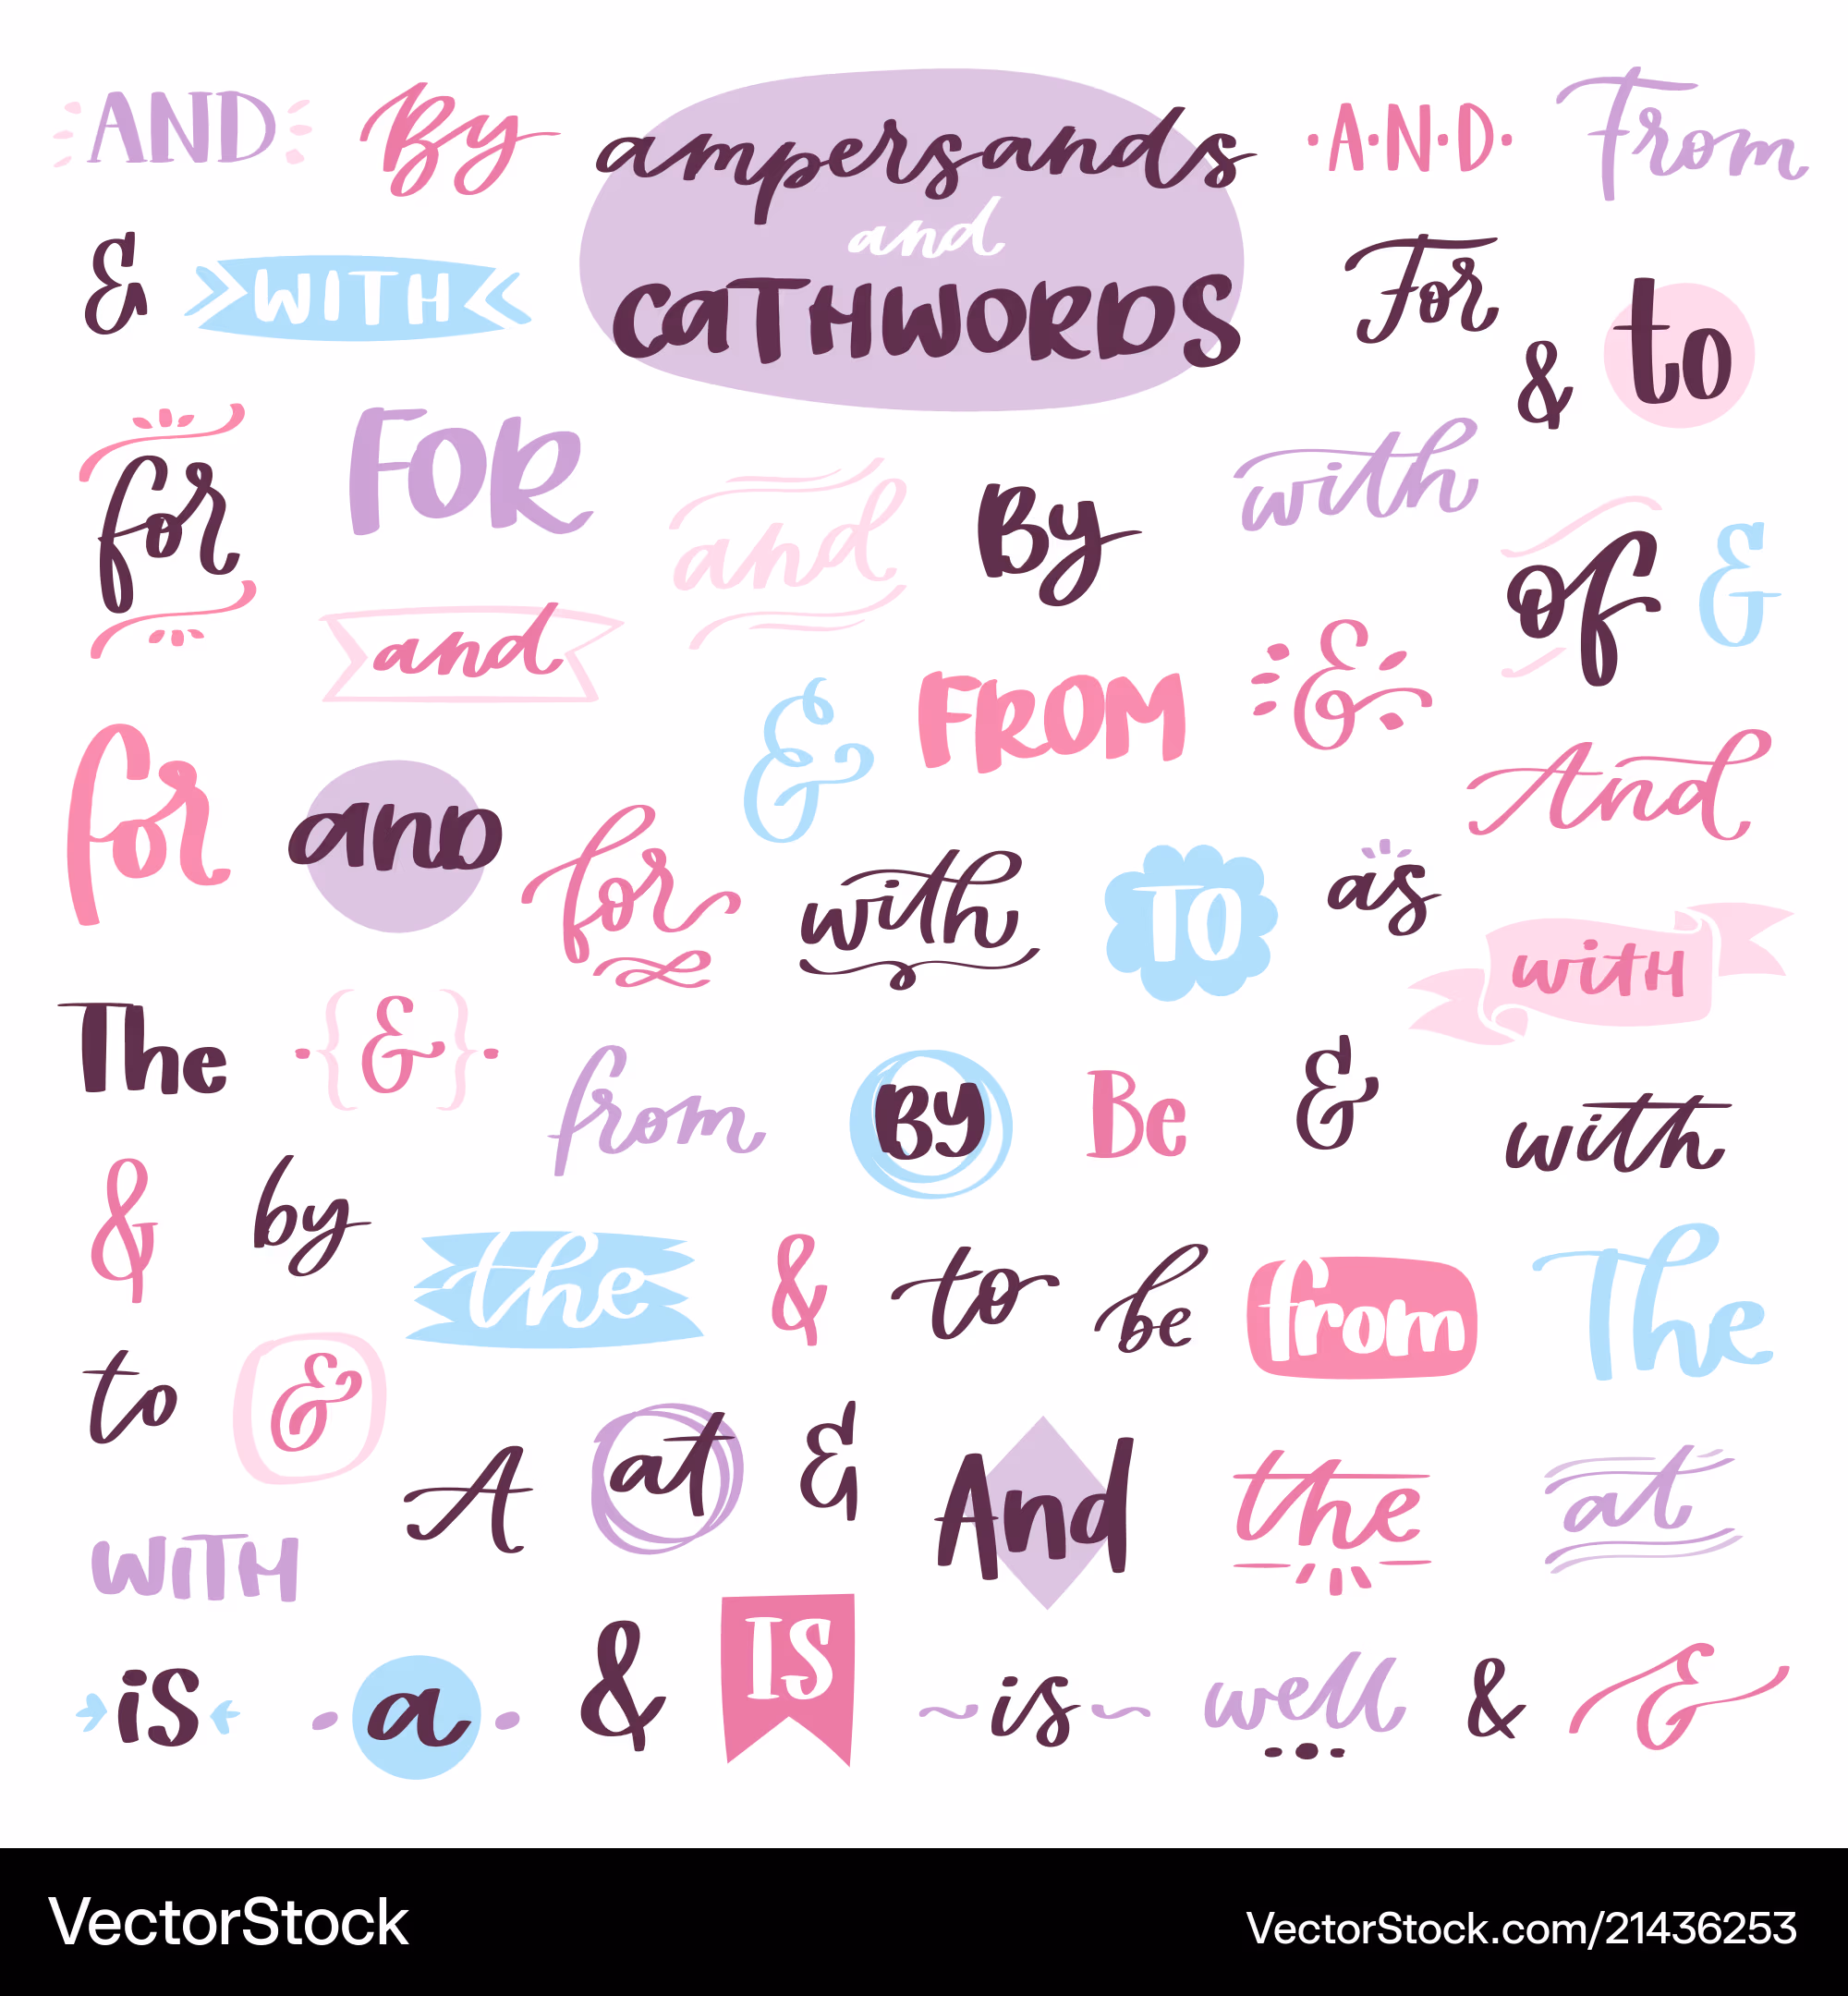 AND By ampersands A·N·D From
and
& WITH CATHWORDS For
& to
for FOR and By with
of &
and
& FROM &
for and for And
with TO as
with
The {&} from By Be & with
& by the & to be from The
to & A at & And the at
WITH
is a & IS is well & &
VectorStock VectorStock.com/21436253